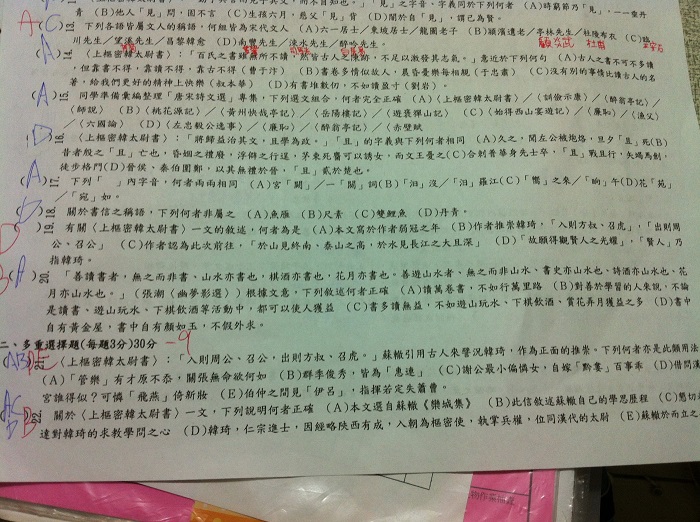 青 (B)他人「見」問,固不言 (C)生孩六月,慈父「見」背 (D)聞於自「見」,謂己為賢。
13. 下列各語皆屬文人的稱謂,何組皆為宋代文人 (A)六一居士/東坡居士/龍圖老子 (B)穎濱遺老/亭林先生/杜陵布衣 (C)臨
川先生/望溪先生/昌黎韓愈 (D)南豐先生/涑水先生/醉吟先生。
14. 〈上樞密韓太尉書〉:「百氏之書雖無所不讀,然皆古人之陳跡,不足以激發其志氣。」意近於下列何句 (A)古人之書不可不多讀
,但靠書不得,靠讀不得,靠古不得(曹于汴) (B)書卷多情似故人,晨昏憂樂每相親(于忠肅) (C)沒有別的事情比讀古人的名
著,給我們更好的精神上快樂(叔本華) (D)有書堆數仞,不如讀盈寸(劉岩)。
15. 同學準備彙編整理「唐宋詩文選」專集,下列選文組合,何者完全正確 (A)〈上樞密韓太尉書〉/〈訓儉示康〉/〈醉翁亭記〉/
〈師說〉 (B)〈桃花源記〉/〈黃州快哉亭記〉/〈岳陽樓記〉/〈遊褒禪山記〉 (C)〈始得西山宴遊記〉/〈廉恥〉/〈漁父〉
/〈六國論〉 (D)〈左忠毅公逸事〉/〈廉恥〉/〈醉翁亭記〉/〈赤壁賦
16. 〈上樞密韓太尉書〉:「將歸益治其文,且學為政。」「且」的字義與下列何者相同 (A)久之,聞左公被炮烙,旦夕「且」死(B)
昔者殷之「且」亡也,昏姻之禮廢,浮僻之行逞,茅束死麕可以誘女,而文王憂之(C)合剌耆華身先士卒,「且」戰且行,矢竭馬創,
徒步格鬥(D)晉侯、秦伯圍鄭,以其無禮於晉,「且」貳於楚也。
17. 下列「 」內字音,何者兩兩相同 (A)宮「闕」/一「闕」詞(B)「汩」沒/「汨」羅江(C)「嚮」之來/「晌」午(D)花「苑」
/「宛」如。
18. 關於書信之稱謂,下列何者非屬之 (A)魚雁 (B)尺素 (C)雙鯉魚 (D)丹青。
19. 有關〈上樞密韓太尉書〉一文的敘述,何者為是 (A)本文寫於作者弱冠之年 (B)作者推崇韓琦,「入則方叔、召虎」,「出則周
公、召公」 (C)作者認為此次前往,「於山見終南、泰山之高,於水見長江之大且深」 (D)「故願得觀賢人之光耀」,「賢人」乃
指韓琦。
20. 「善讀書者,無之而非書、山水亦書也,棋酒亦書也,花月亦書也。善遊山水者、無之而非山水、書史亦山水也、詩酒亦山水也、花
月亦山水也。」(張潮〈幽夢影選〉)根據文意,下列敘述何者正確 (A)讀萬卷書,不如行萬里路 (B)對善於學習的人來說,不論
是讀書、遊山玩水、下棋飲酒等活動中,都可以使人獲益 (C)書多讀無益,不如遊山玩水、下棋飲酒、賞花弄月獲益之多 (D)書中
自有黃金屋,書中自有顏如玉,不假外求。
二、多重選擇題(每題3分)30分 -9
21. 〈上樞密韓太尉書〉:「入則周公、召公,出則方叔、召虎。」蘇轍引用古人來譬況韓琦,作為正面的推崇。下列何者亦是此類用法
(A)「管樂」有才原不忝,關張無命欲何如 (B)群季俊秀,皆為「惠連」 (C)謝公最小偏憐女,自嫁「黔婁」百事乖 (D)借問漢
宮誰得似?可憐「飛燕」倚新妝 (E)伯仲之間見「伊呂」,指揮若定失蕭曹。
22. 關於〈上樞密韓太尉書〉一文,下列說明何者正確 (A)本文選自蘇轍《欒城集》 (B)此信敘述蘇轍自己的學思歷程 (C)懇切
達對韓琦的求教學問之心 (D)韓琦,仁宗進士,因經略陝西有成,入朝為樞密使,執掌兵權,位同漢代的太尉 (E)蘇轍於而立之